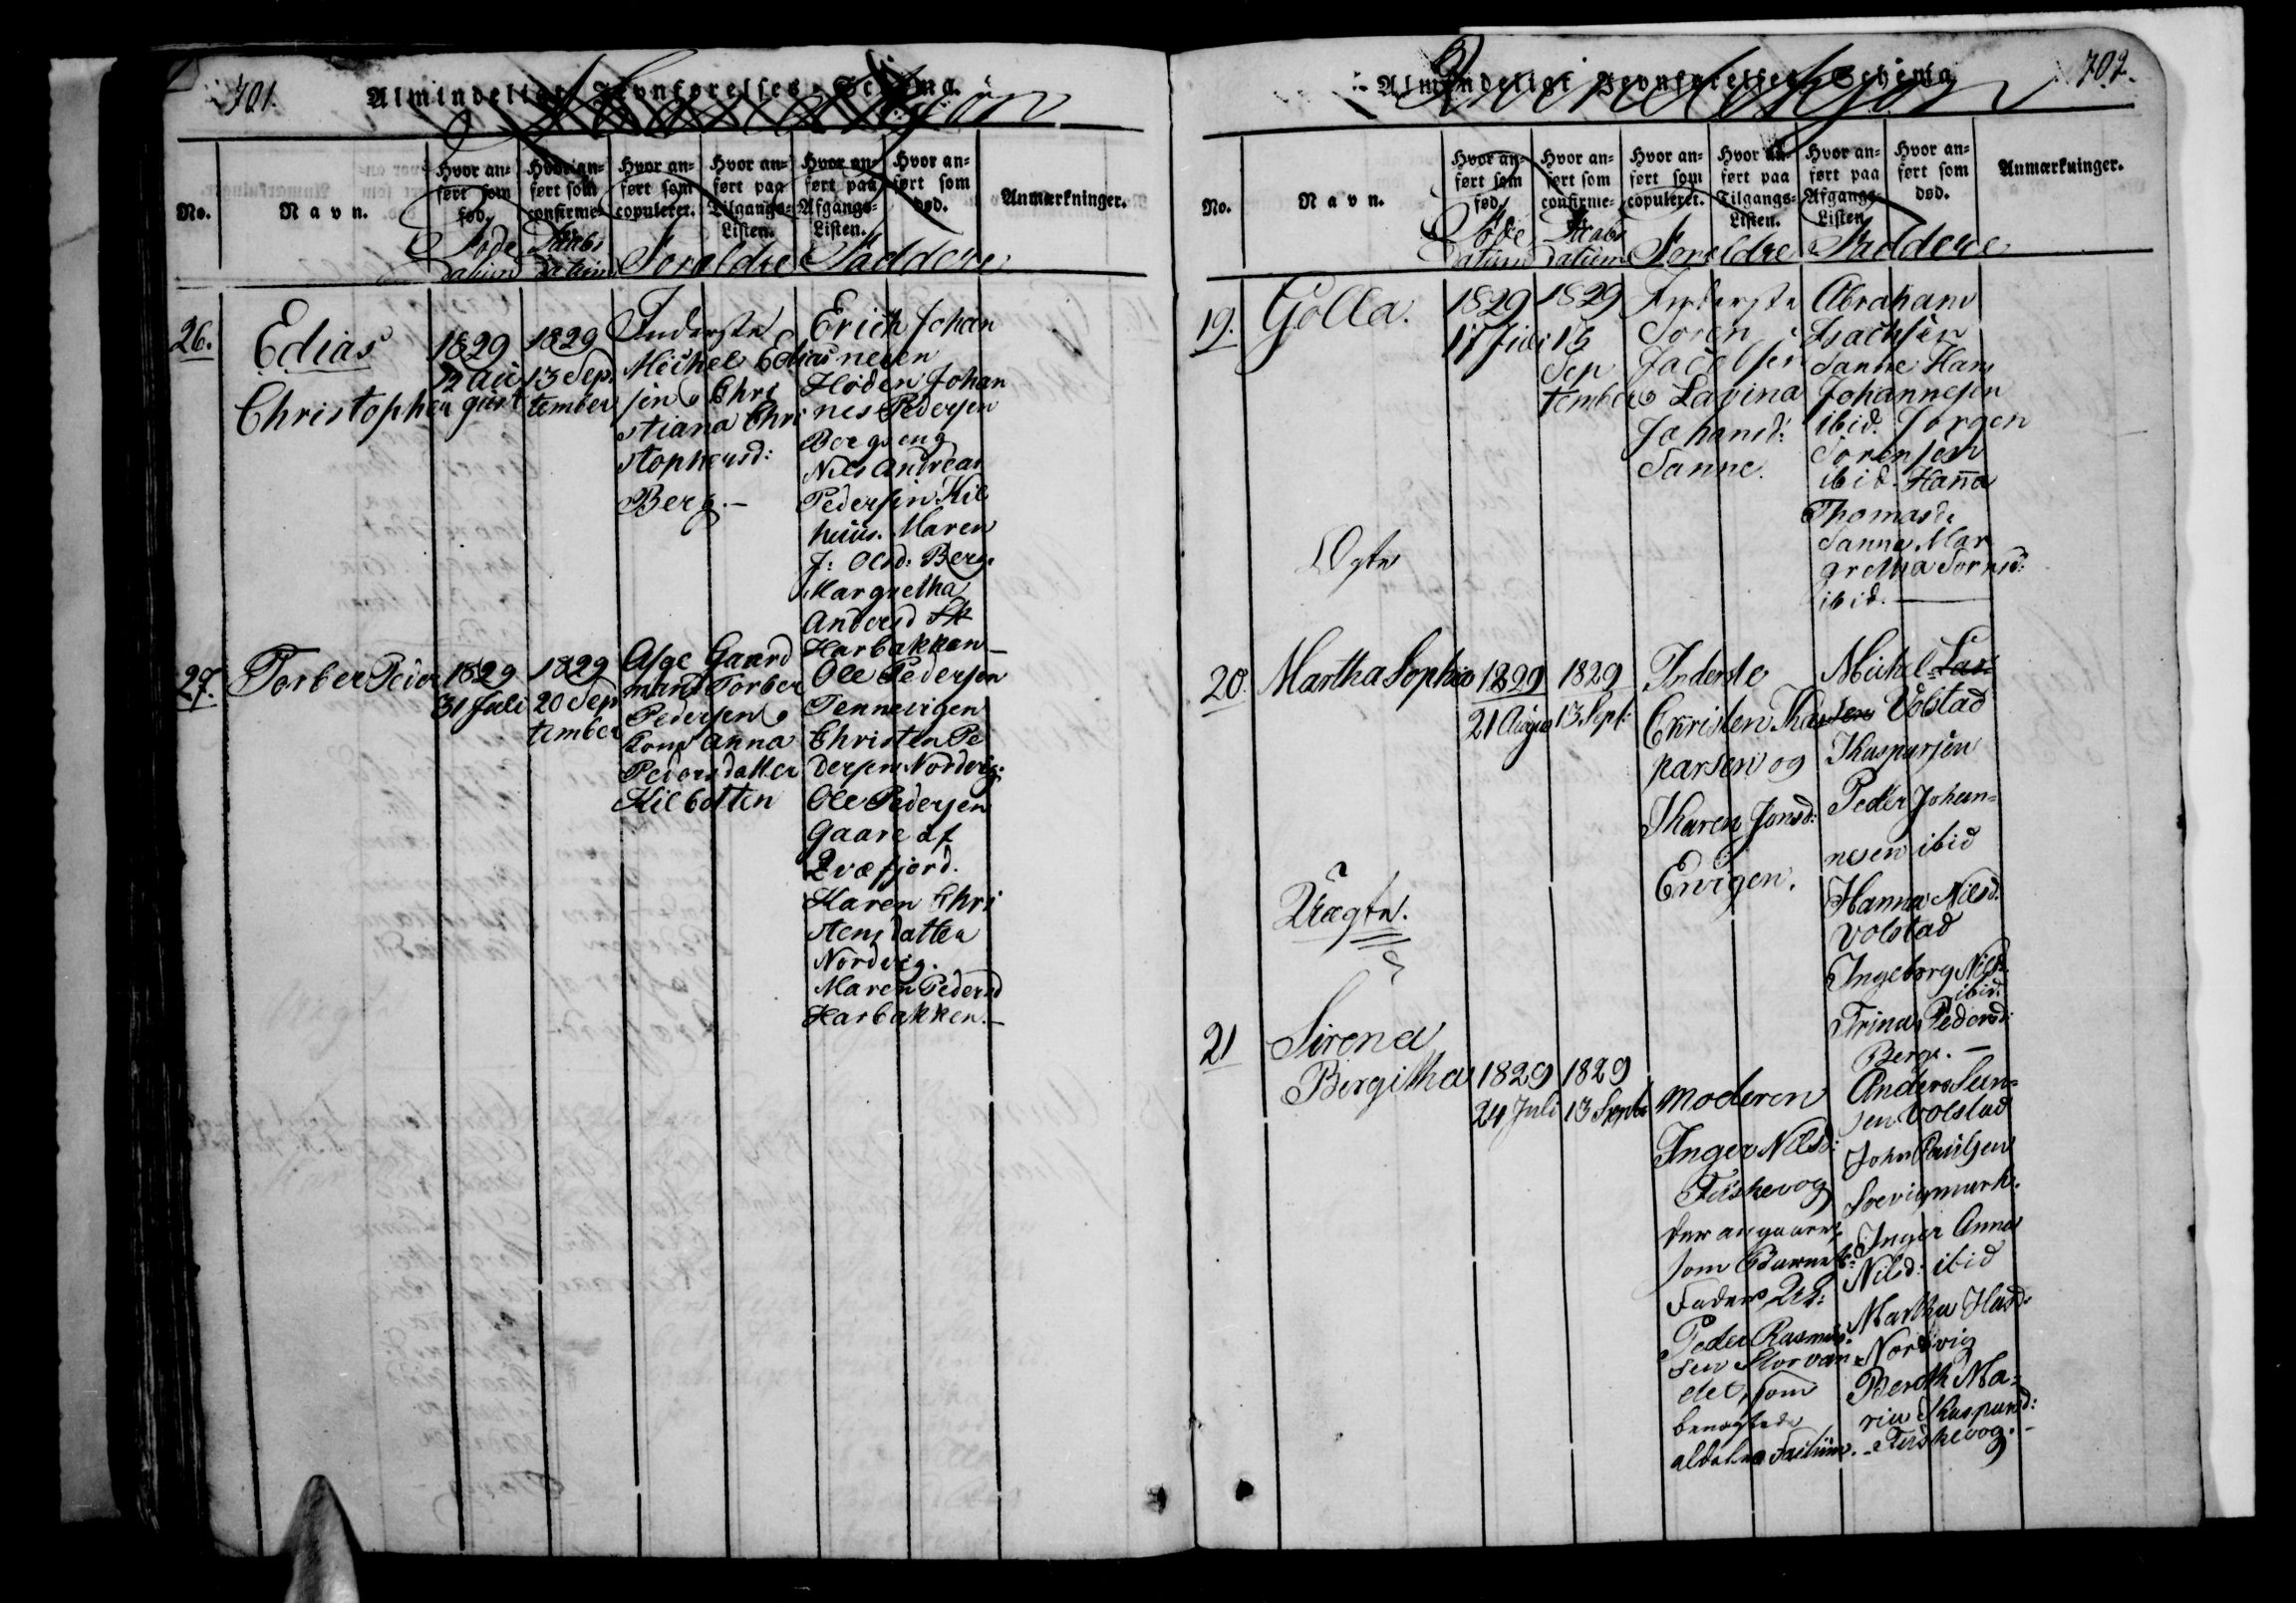 701.
Almindeligt Jevnførelses-Schema.
Mandkjøn
No.
Navn.
Hvor anført som fød.
Hvor anført som confirmeret
Hvor anført som copuleret.
Hvor anført paa Tilgangs-Listen.
Hvor anført paa Afgangs-Listen.
Hvor anført som død.
Anmærkninger.
Føde datum
Daabs datum
Foreldre
Faddere
26.
Edias
Christopher
1829
12 Au
gust
1829
13 Sep
tember
Inderste
Michel Edias
sen og Chri
stiana Chri
stophersd:
Berg.-
Erich Johan
nesen
Hoden Johan
nes Pedersen
Borgeng
Nils Andreas
Pedersen Kil
huus. Maren
J: Olsd: Berg.
Margretha
Andersd
Harbakken-
27.
Torber Peder
1829
31 Juli
1829
20 Sep
tember
Gaard
mand Torber
Pedersen og
Kone Anna
Pedersdatter
Kilbotten
Ole Pedersen
Tennevigen
Christen Pe
dersen Nordvig:
Ole Pedersen
Gaare af
Qvæfjord.
Karen Chri
stensdatter
Nordvig.
Maren Pedersd
Harbakken.-
702.
Almindeligt Jevnførelses-Schema
Qvindekjøn
No.
Navn.
Hvor anført som fød.
Hvor anført som confirmeret
Hvor anført som copuleret.
Hvor anført paa Tilgangs-Listen.
Hvor anført paa Afgangs-Listen.
Hvor anført som død.
Anmærkninger.
Føde datum
Daabs datum
Foreldre
Faddere
19.
Golla.
Ogte
1829
17 Juli
1829
13
Sep
tember
Inderste
Soren
Jacobsen
og Lavina
Johansd:
Sanne.
Abraham
Isachsen
Sanne Hans
Johannesen
ibid. Jorgen
Sorensen
ibid. Hanna
Thomasd:
Sanne. Mar
gretha Sornsd:
ibid.
20.
Martha Sophia
Uægte.
1829
21 August
1829
13 Sept:
Inderste
Christen Kas
parsen og
Karen Jonsd:
Ervigen.
Michel Las
sen Volstad
Kasparsen
Peder Johan=
nesen ibid
Hanna Nilsd:
Volstad
Ingeborg Nilsd:
ibid.
Trina Pedersd:
Berge.-
21
Sirena
Bergitha
1829
24 Juli
1829
13 Septbr
moderen
Inger Nilsd:
Fuskevog
der angaaer
som Barnets
Fader U:
Peder Rasmus=
sen Storvan
det, som
benægtede
aldeles Factum.
Anders Sun=
sen Volstad
John Paulsen
Soevigmark.
Inger Anna
Nilsd: ibid
Martha Hansd:
Nordvig
Bereth Ma=
ria Kasparsd:
Fuskevog.-